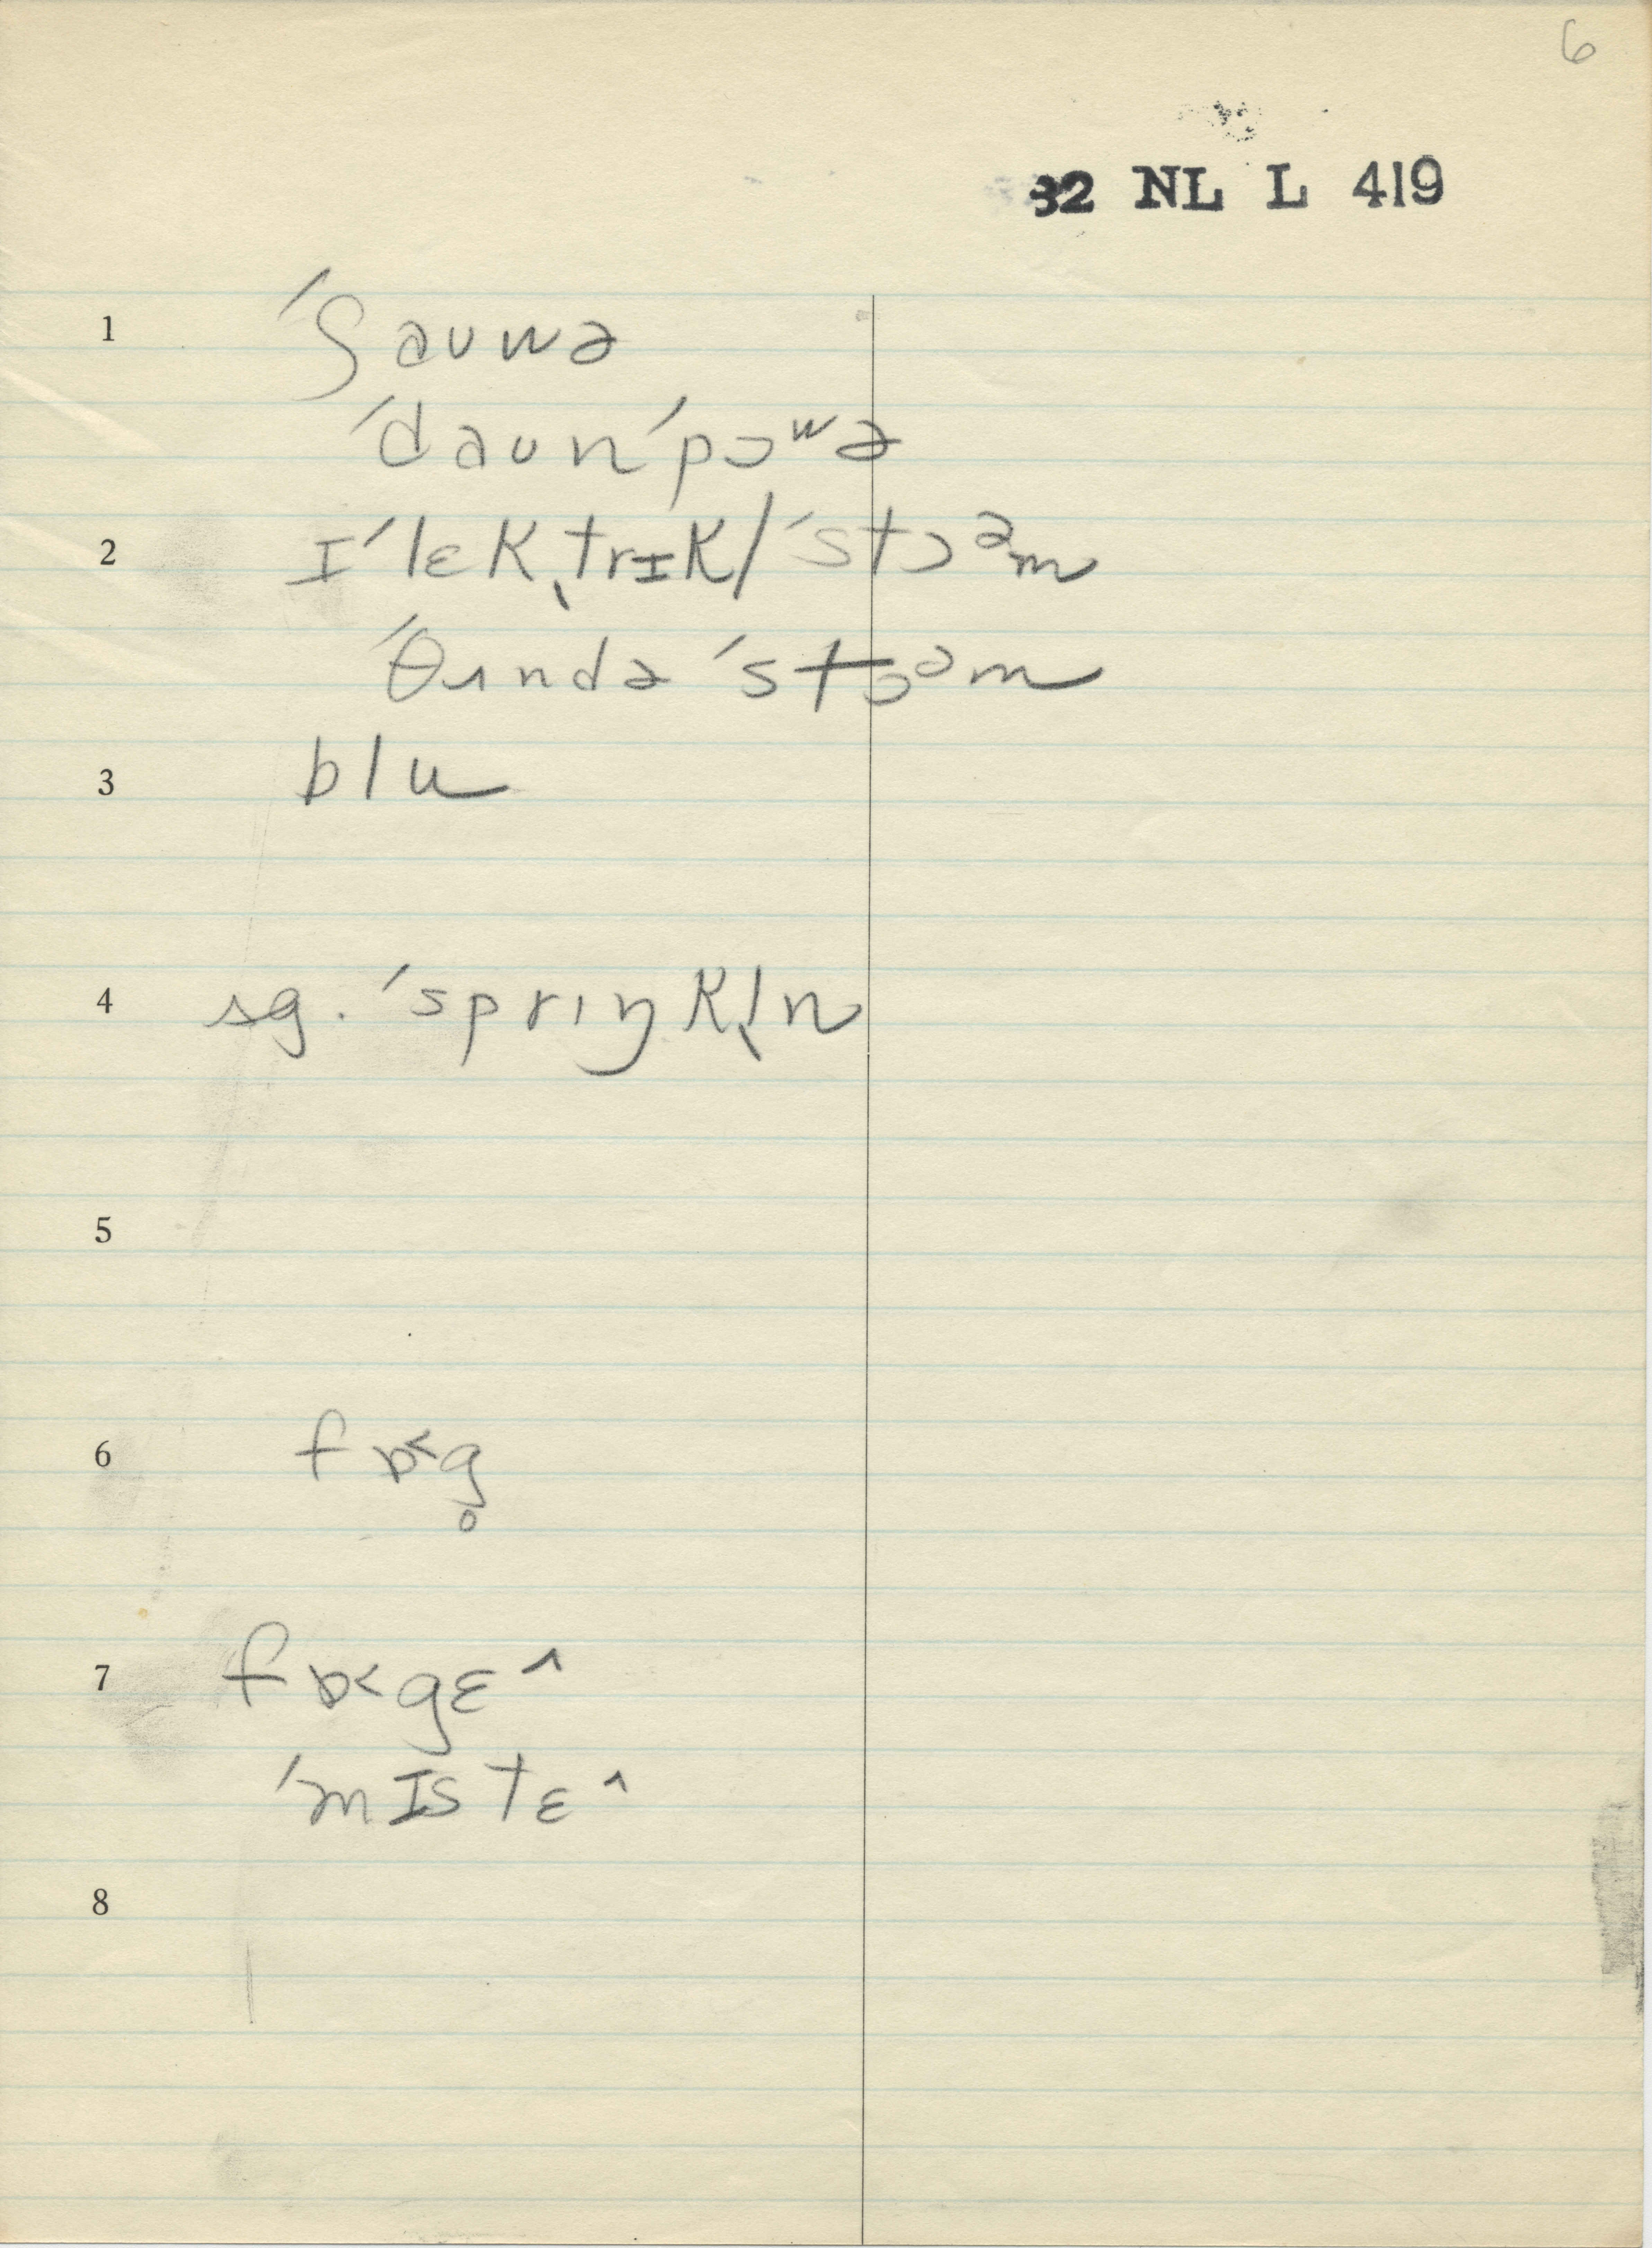 6
32 NL L 419
1 ˈʃauwə
ˈdaunˈpɔʷə
2 ɪˈlɛkˌtrɪk/ˈstɔᵊm
ˈθʌndəˈstɔᵊm
3 blu
4 sg. ˈsprɪŋkl̩n
5
6 fɒ˂g̥
7 fɒ˂gɛ^
ˈmɪstɛ^
8